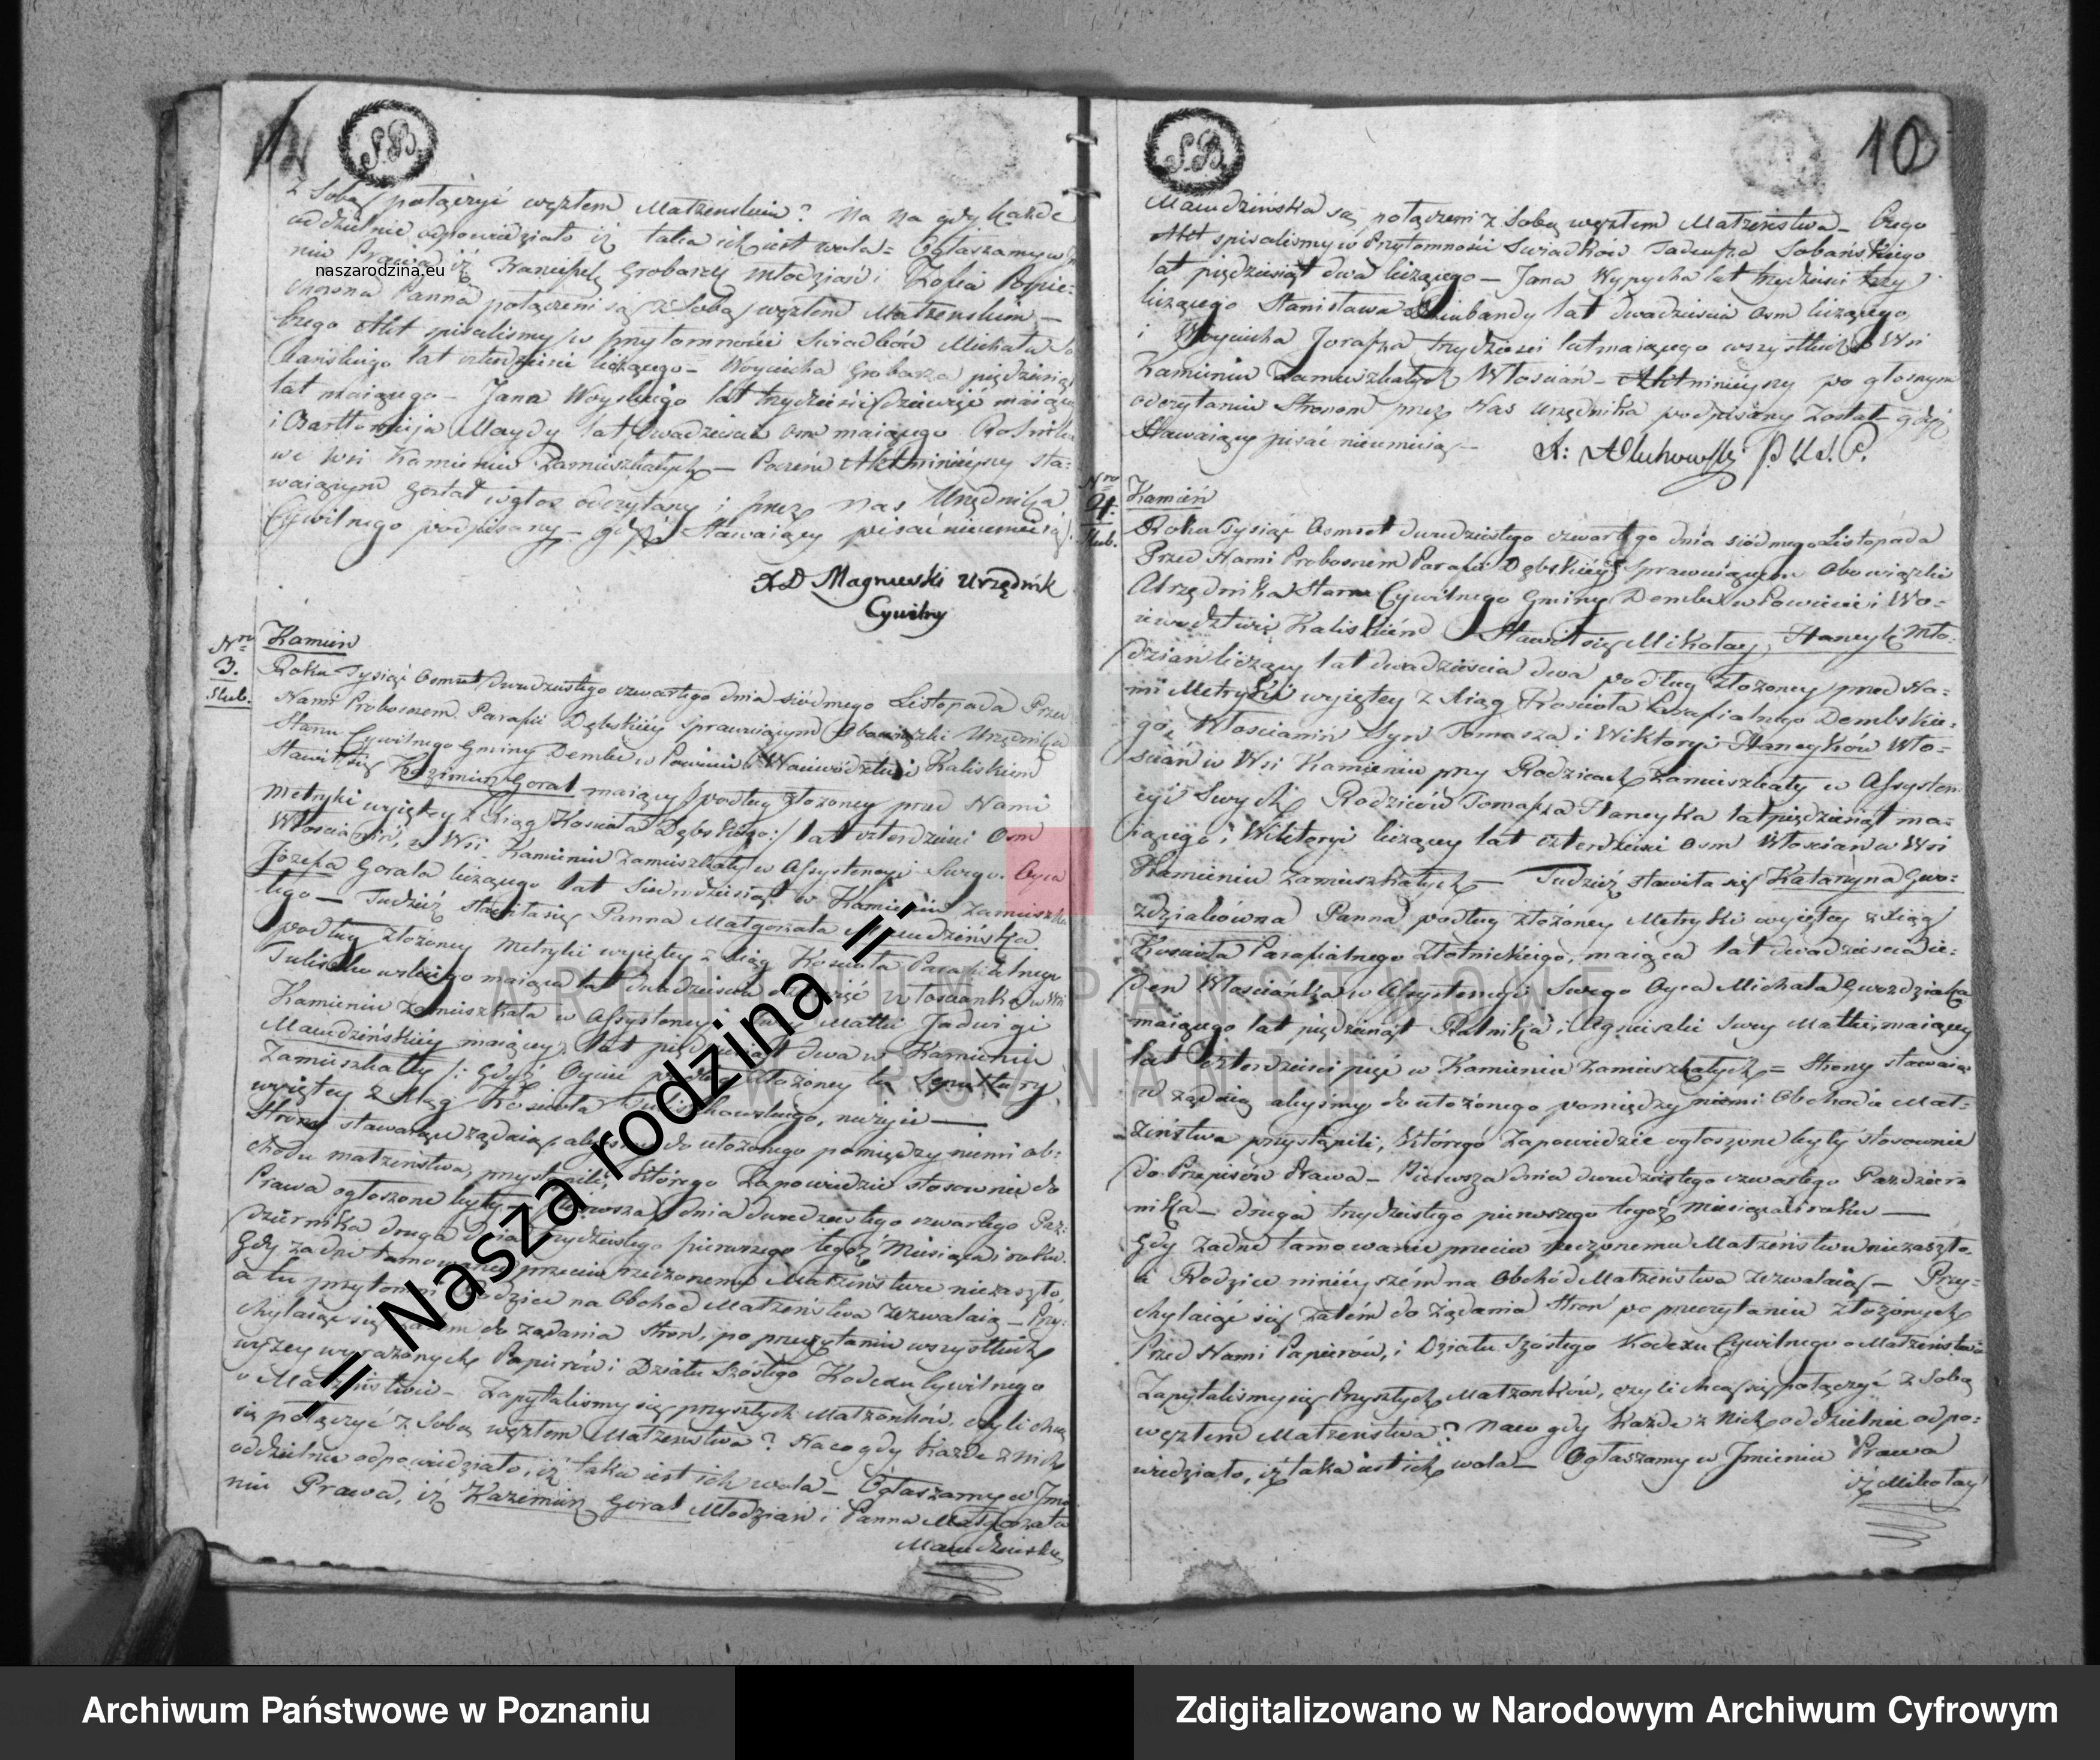 S.B.
z Sobą połączyć węzłem Matzenskim? Na na gdy każde
oddzielnie odpowiedziało iż taka ich iest wola = Ogłaszamy w Im
niu Prawa iż Franciszek Grobarzy Młodzian i Zofia Popie-
naszarodzina.eu
Panna połączeni są z Sobą węzłem Matzenskim —
Czego Akt spisalismy w przytomnosci Swiadków Michała So
bańskiego lat czterdziesci liczącego — Woyciecha Grobarza pięćdziesiąt
lat maiącego — Jana Woyskiego lat trzydziesci dziewięc maiące
i Bartłomieja Maydy lat dwadziescia osm maiącego
we Wsi Kamieniu Zamieszkałych — Poczem Akt ninieyszy sta-
waiącym został w głos odczytany i przez nas Urzędnika
Cywilnego podpisany — gdyż Stawaiący pisać nieumieią.
X D Magnuski Urzędnik
Cywilny
Nro
3.
Slub.
Kamien
Roku Tysiąc Osmset dwudziestego czwartego dnia siódmego Listopada Przed
Nami Proboszczem Parafii Dębskiéy sprawuiącym Obowiązki Urzędnika
Stanu Cywilnego Gminy Dembe w Powiecie i Woiewództwie Kaliskiem
Stawił się Kazimierz Goral maiący podług złożoney przed Nami
Metryki wyiętey z Xiąg Kościoła Dębskiego :/ lat czterdziesci Osm
Włościanin, w Wsi Kamieniu zamieszkały w Assystencyi Swego Oyca
Józefa Gorala liczącego lat Siedmdziesiąt w Kamieniu zamieszka
łego — Tudzież stawiła się Panna Małgorzata
podług złożoney Metryki wyiętey z Xiąg Kościoła Parafialnego
maiąca lat dwadziescia Włościanka w Wsi
Kamieniu Zamieszkała w Assystencyi Swey Matki Jadwigi
maiącey lat pięćdziesiąt dwa w Kamieniu
Zamieszkałey /: gdyż Oyciec podług złożoney tu Sepultury
wyiętey z Xiąg Kościoła nieżyie —
Strony stawaiące żądaią abysmy do ułożonego pomiędzy niemi ob-
chodu małżeństwa przystąpili, którego Zapowiedzie stosownie do
Prawa ogłoszone były — Pierwsza dnia dwudziestego czwartego Paź-
dziernika druga dnia trzydziestego pierwszego tegoż Miesiąca i roku.
Gdy żadne tamowanie przeciw rzeczonemu Małżeństwu niezaszło,
a tu przytomni Rodzice na Obchod Małżeństwa zezwalaią — Przy-
chylaiąc się zatem do żądania Stron, po przeczytaniu wszystkich
wyżey wyrażonych Papierów i Działu Szóstego Kodexu Cywilnego
o Małżeństwie — Zapytalismy się przyszłych Małżonków, czyli chcą
się połączyć z Sobą węzłem Małżeństwa? Na co gdy każde z nich
oddzielnie odpowiedziało, iż taka iest ich wola — Ogłaszamy w Imie
niu Prawa, iż Kazimierz Goral Młodzian i Panna Małgorzata
S.B.
10
są połączeni z Sobą węzłem Małżeństwa — Czego
Akt spisalismy w Przytomności Swiadków Tadeusza Sobańskiego
lat pięćdziesiąt dwa liczącego — Jana Wypycha lat trzydziesci trzy
liczącego Stanisława lat dwadziescia Osm liczącego
i Woyciecha Jorasza trzydziesci lat maiącego wszystkich w Wsi
Kamieniu Zamieszkałych Włościan — Akt ninieyszy po głosnym
odczytaniu Stronom przez Nas Urzędnika podpisany został gdyż
Stawaiący pisać nieumieią —
Nro
4.
Slub.
Kamień
Roku Tysiąc Osmset dwudziestego czwartego dnia siódmego Listopada
Przed Nami Proboszczem Parafii Dębskiéy Sprawuiącym Obowiązki
Urzędnika Stanu Cywilnego Gminy Dembe w Powiecie i Wo-
iewodztwie Kaliskiem Stawił się Mikołay Haneyk Mło-
dzian liczący lat dwadziescia dwa podług złożoney przed Na-
mi Metryki wyiętey z Xiąg Kościoła Parafialnego Dembskie-
go, Włościanin Syn Tomasza i Wiktoryi Haneyków Wło-
ścian w Wsi Kamieniu przy Rodzicach zamieszkały w Assysten-
cyi Swych Rodziców Tomasza Haneyka lat pięćdziesiąt ma-
iącego i Wiktoryi liczącey lat czterdziesci osm Włościan w Wsi
Kamieniu zamieszkałych — Tudzież stawiła się Katarzyna Gwo-
zdziakówna Panna podług złożoney Metryki wyiętey z Xiąg
Kościoła Parafialnego Złotnickiego, maiąca lat dwadziescia ie-
den Włościanka w Assystencyi Swego Oyca Michała Gwozdziaka
maiącego lat pięćdziesiąt Ratnika i Agnieszki Swey Matki, maiącey
lat czterdziesci pięć w Kamieniu Zamieszkałych = Strony stawaią-
ce żądaią abysmy do ułożonego pomiędzy niemi Obchodu Mał-
żeństwa przystąpili, którego Zapowiedzie ogłoszone były stosownie
do Przepisów Prawa — Pierwsza dnia dwudziestego czwartego Pazdzier-
nika — druga trzydziestego pierwszego tegoż Miesiąca i roku —
Gdy żadne tamowanie przeciw rzeczonemu Małżeństwu niezaszło.
a Rodzice ninieyszem na Obchód Małżeństwa zezwalaią — Przy-
chylaiąc się zatém do żądania Stron po przeczytaniu złożonych
Przed Nami Papierów, i Działu Szóstego Kodexu Cywilnego o Małżeństwie
Zapytalismy się Przyszłych Małżonków, czyli chcą się połączyć z Sobą
węzłem Małżeństwa? na co gdy każde z Nich oddzielnie odpo-
wiedziało, iż taka iest ich wola — Ogłaszamy w Imieniu Prawa
iż Mikołay
-= Nasza rodzina =-
ARCHIWUM PAŃSTWOWE
W POZNANIU
Archiwum Państwowe w Poznaniu
Zdigitalizowano w Narodowym Archiwum Cyfrowym